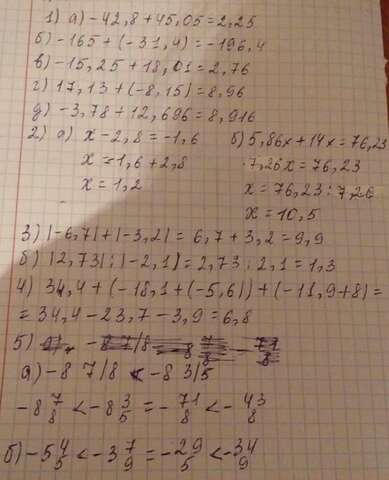 1) а) -42,8+45,05=2,25
б) -165+(-31,4)=-196,4
в) -15,25+18,01=2,76
г) 17,13+(-8,15)=8,96
д) -3,78+12,696=8,916
2) а) x-2,8=-1,6
x=-1,6+2,8
x=1,2
б) 5,86x+14x=76,23
7,26x=76,23
x=76,23:7,26
x=10,5
3) |-6,7|+|-3,2|=6,7+3,2=9,9
б) |2,73|:|-2,1|=2,73:2,1=1,3
4) 34,4+(-18,1+(-5,6))+(-11,9+8)=
=34,4-23,7-3,9=6,8
5)
а) -8 7/8 < -8 3/5
-8 7/8 < -8 3/5 = -71/8 < -43/8
б) -5 4/5 < -3 7/9 = -29/5 < -34/9